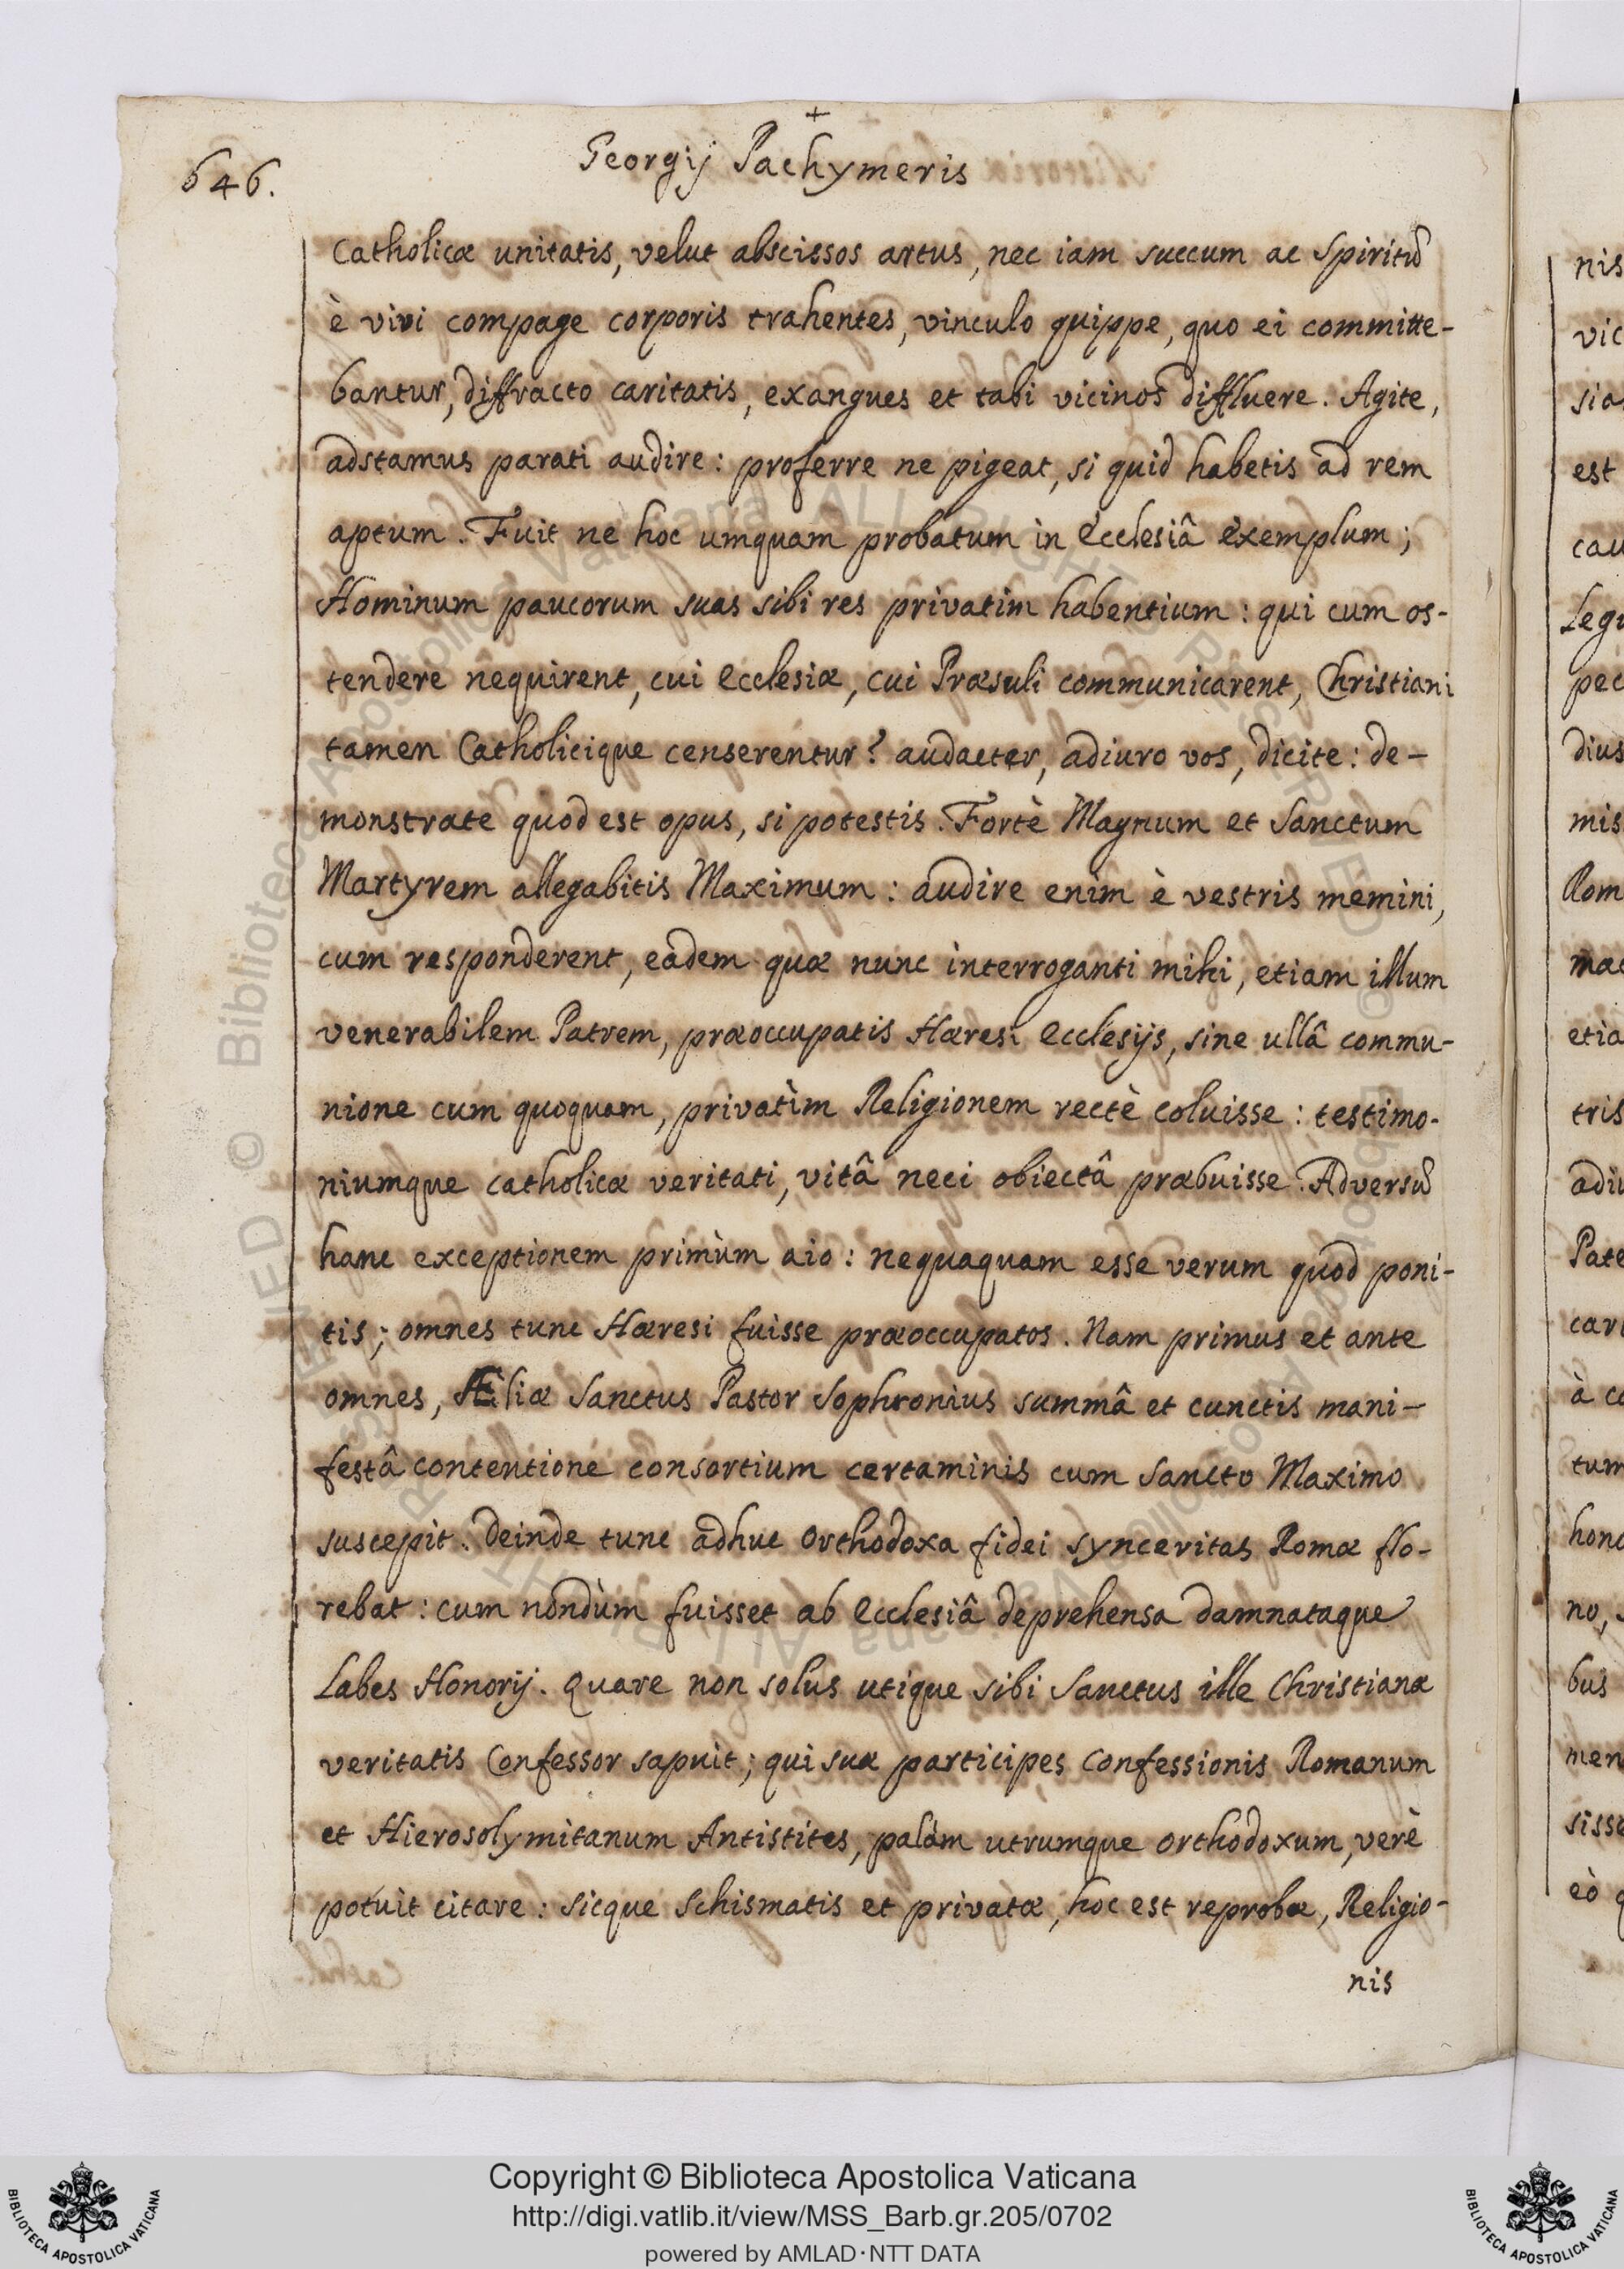 646.
+
Georgij Pachymeris
Catholicæ unitatis, velut abscissos artus, nec iam succum ac Spiritũ
è vivi compage corporis trahentes, vinculo quippe, quo ei committe-
bantur, diffracto caritatis, exangues et tabi vicinos diffluere. Agite,
adstamus parati audire: proferre ne pigeat, si quid habetis ad rem
aptum. Fuit ne hoc umquam probatum in Ecclesiâ Exemplum;
Hominum paucorum suas sibi res privatim habentium: qui cum os-
tendere nequirent, cui Ecclesiæ, cui Præsuli communicarent, Christiani
tamen Catholicique censerentur? audacter, adiuro vos, dicite: de-
monstrate quod est opus, si potestis. Fortè Magnum et Sanctum
Martyrem allegabitis Maximum: audire enim è vestris memini,
cum responderent, eadem quæ nunc interroganti mihi, etiam illum
venerabilem Patrem, præoccupatis Hæresi Ecclesijs, sine ullâ commu-
nione cum quoquam, privatìm Religionem rectè coluisse: testimo-
niumque catholicæ veritati, vitâ neci obiectâ præbuisse. Adversũ
hanc exceptionem primùm aio: nequaquam esse verum quod poni-
tis; omnes tunc Hæresi fuisse præoccupatos. Nam primus et ante
omnes, Æliæ Sanctus Pastor Sophronius summâ et cunctis mani-
festâ contentione consortium certaminis cum Sancto Maximo
suscepit. Deinde tunc adhuc Orthodoxa fidei synceritas Romæ flo-
rebat: cum nondùm fuisset ab Ecclesiâ deprehensa damnataque
Labes Honorij. Quare non solus utique sibi Sanctus ille Christianæ
veritatis Confessor sapuit; qui suæ participes Confessionis Romanum
et Hierosolymitanum Antistites, palàm utrumque Orthodoxum, verè
potuit citare: sicque Schismatis et privatæ, hoc est reprobæ, Religio-
nis
nis
vic
sia
est
cau
Legi
pec
dius
mis
Rom
mac
etia
tris
adiu
Pate
cari
à co
tum
hono
no,
bus
men
sisse
eò q
© Biblioteca Apostolica Vaticana ALL RIGHTS RESERVED
Copyright © Biblioteca Apostolica Vaticana
http://digi.vatlib.it/view/MSS_Barb.gr.205/0702
powered by AMLAD·NTT DATA
BIBLIOTECA APOSTOLICA VATICANA
BIBLIOTECA APOSTOLICA VATICANA